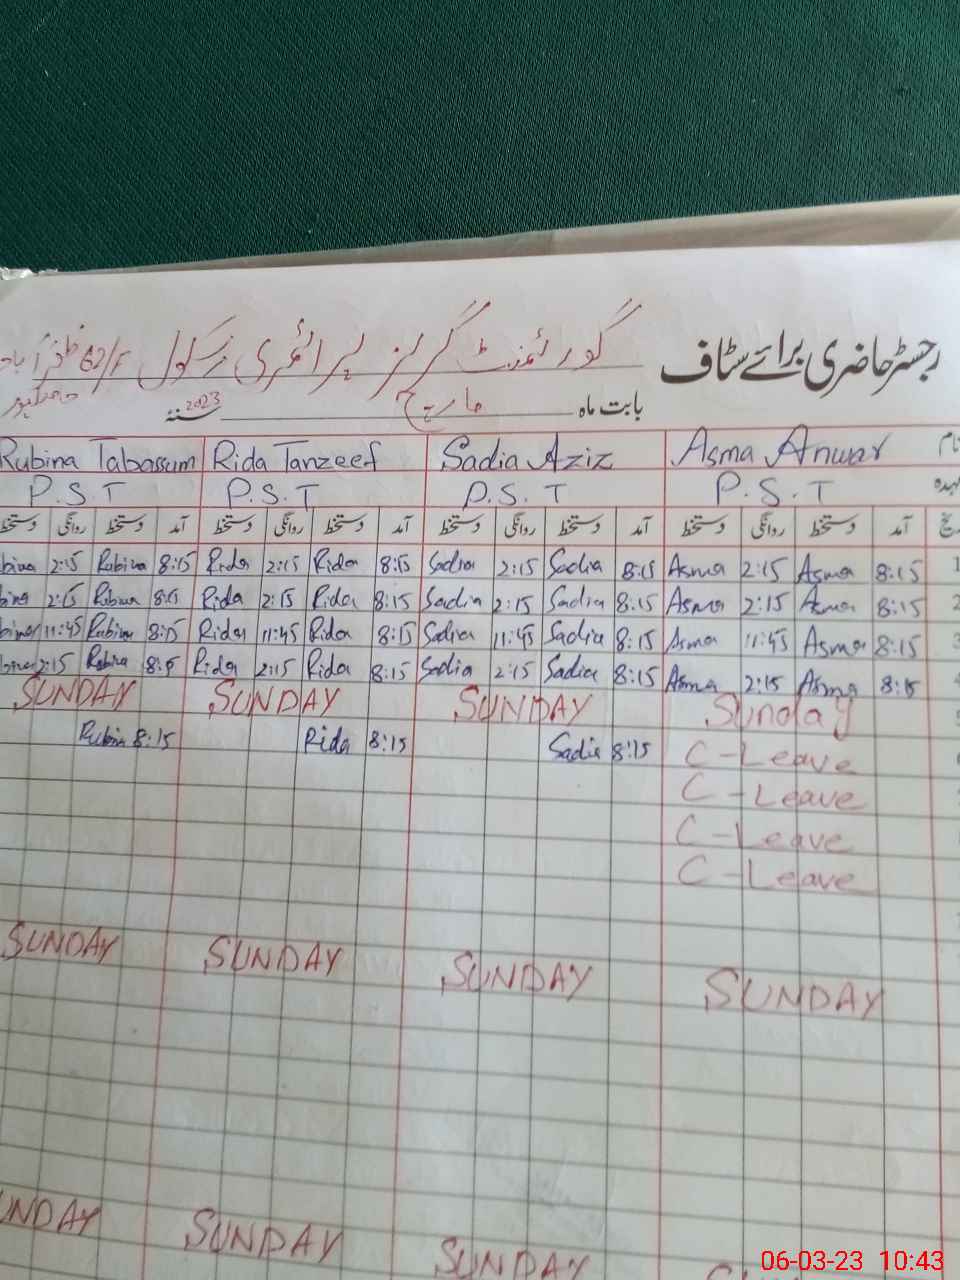 رجسٹر حاضری برائے سٹاف گورنمنٹ گرلز پرائمری سکول 62/F ظفر آباد
بابت ماہ مارچ 2023
Rubina Tabassum Rida Tanzeef Sadia Aziz Asma Anwar نام
P.S.T P.S.T P.S.T P.S.T عہدہ
دستخط روانگی دستخط آمد دستخط روانگی دستخط آمد دستخط روانگی دستخط آمد دستخط روانگی دستخط آمد
bina 2:15 Rubina 8:15 Rida 2:15 Rida 8:15 Sadia 2:15 Sadia 8:15 Asma 2:15 Asma 8:15 1
bina 2:15 Rubina 8:15 Rida 2:15 Rida 8:15 Sadia 2:15 Sadia 8:15 Asma 2:15 Asma 8:15 2
bina 11:45 Rubina 8:15 Rida 11:45 Rida 8:15 Sadia 11:45 Sadia 8:15 Asma 11:45 Asma 8:15 3
2:15 Rubina 8:15 Rida 2:15 Rida 8:15 Sadia 2:15 Sadia 8:15 Asma 2:15 Asma 8:15
SUNDAY SUNDAY SUNDAY Sunday
Rubina 8:15 Rida 8:15 Sadia 8:15 C-Leave
C-Leave
C-Leave
C-Leave
SUNDAY SUNDAY SUNDAY SUNDAY
UNDAY SUNDAY SUNDAY
06-03-23 10:43